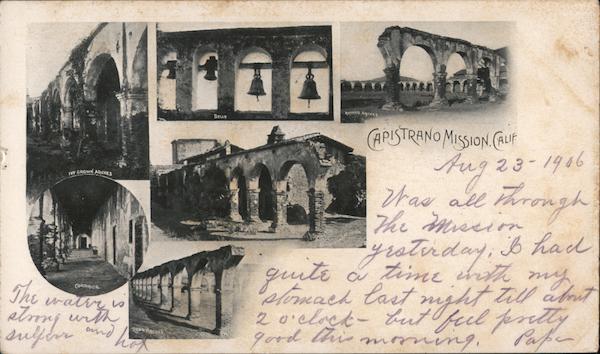 IVY GROWN ARCHES
BELLS
CAPISTRANO MISSION, CALIF
CORRIDOR
Aug 23 - 1906
Was all through
The Mission
yesterday. I had
quite a time with my
stomach last night till about
2 o'clock - but feel pretty
good this morning. Papa
The water is
strong with
sulferr and hot